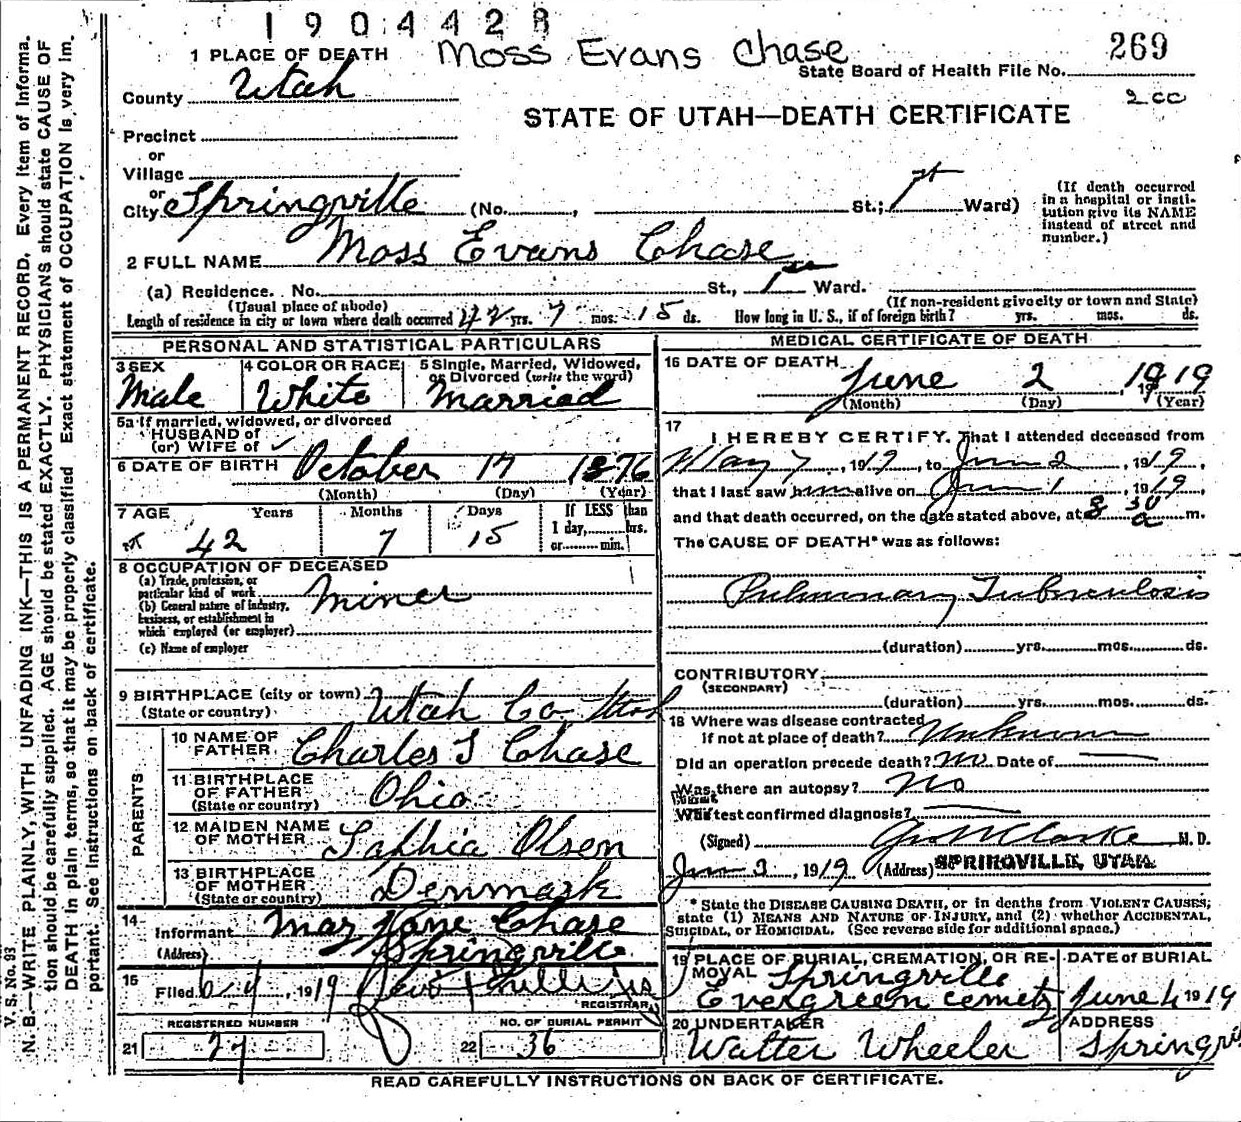 1904428
1 PLACE OF DEATH Moss Evans Chase 269
State Board of Health File No.
County Utah 2 cc
STATE OF UTAH—DEATH CERTIFICATE
Precinct
or
Village
or
City Springville (No. , St.; 1st Ward)
(If death occurred in a hospital or insti-
tution give its NAME
instead of street and
number.)
2 FULL NAME Moss Evans Chase
(a) Residence. No. St., 1st Ward.
(Usual place of abode) (If non-resident give city or town and State)
Length of residence in city or town where death occurred 42 yrs. 7 mos. 15 ds. How long in U. S., if of foreign birth? yrs. mos. ds.
PERSONAL AND STATISTICAL PARTICULARS
3 SEX Male
4 COLOR OR RACE White
5 Single, Married, Widowed,
or Divorced (write the word)
Married
5a If married, widowed, or divorced
HUSBAND of
(or) WIFE of
6 DATE OF BIRTH October 17 1876
(Month) (Day) (Year)
7 AGE Years Months Days If LESS than
1 day, hrs.
or min.
42 7 15
8 OCCUPATION OF DECEASED
(a) Trade, profession, or
particular kind of work Miner
(b) General nature of industry,
business, or establishment in
which employed (or employer)
(c) Name of employer
9 BIRTHPLACE (city or town)
(State or country) Utah Co Utah
PARENTS
10 NAME OF
FATHER Charles S Chase
11 BIRTHPLACE
OF FATHER Ohio
(State or country)
12 MAIDEN NAME
OF MOTHER Olsen
13 BIRTHPLACE
OF MOTHER Denmark
(State or country)
14
Informant Mary Jane Chase
(Address) Springville
15
Filed 6-4, 1919
REGISTRAR
REGISTERED NUMBER
21 27
NO. OF BURIAL PERMIT
22 36
MEDICAL CERTIFICATE OF DEATH
16 DATE OF DEATH June 2, 1919
(Month) (Day) (Year)
17
I HEREBY CERTIFY. That I attended deceased from
May 7, 1919, to Jun 2, 1919,
that I last saw him alive on Jun 1, 1919,
and that death occurred, on the date stated above, at 8 30 a m.
The CAUSE OF DEATH* was as follows:
Pulmonary Tuberculosis
(duration) yrs. mos. ds.
CONTRIBUTORY
(SECONDARY)
(duration) yrs. mos. ds.
18 Where was disease contracted
if not at place of death? Unknown
Did an operation precede death? No Date of
Was there an autopsy? No
What test confirmed diagnosis?
(Signed) Geo Clarke M. D.
Jun 3, 1919 (Address) SPRINGVILLE, UTAH.
* State the DISEASE CAUSING DEATH, or in deaths from VIOLENT CAUSES;
state (1) MEANS AND NATURE OF INJURY, and (2) whether ACCIDENTAL,
SUICIDAL, OR HOMICIDAL. (See reverse side for additional space.)
19 PLACE OF BURIAL, CREMATION, OR RE-
MOVAL Springville
Evergreen cemety
DATE OF BURIAL
June 4 1919
20 UNDERTAKER
Walter Wheeler
ADDRESS
Springvil
READ CAREFULLY INSTRUCTIONS ON BACK OF CERTIFICATE.
V. S. No. 93
N. B.—WRITE PLAINLY, WITH UNFADING INK—THIS IS A PERMANENT RECORD. Every item of informa-
tion should be carefully supplied. AGE should be stated EXACTLY. PHYSICIANS should state CAUSE OF
DEATH in plain terms, so that it may be properly classified. Exact statement of OCCUPATION is very im-
portant. See instructions on back of certificate.